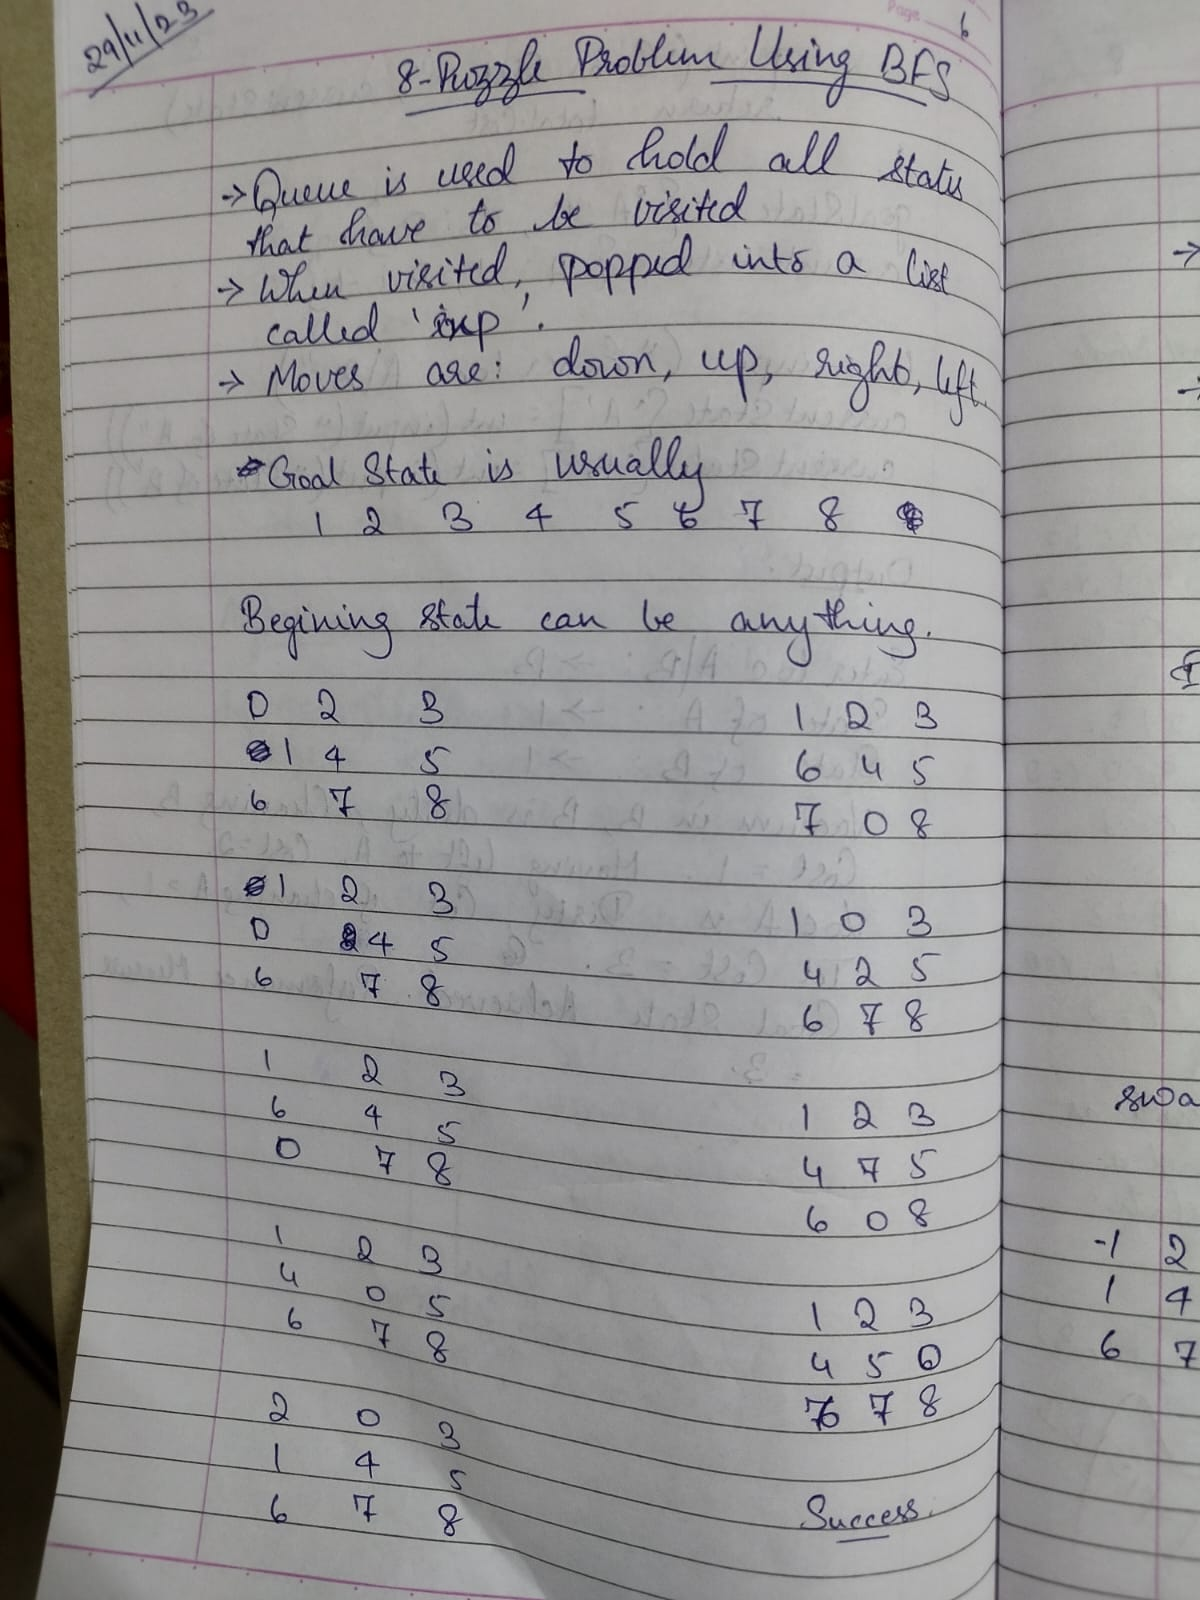 29/11/23
Page 6
8-Puzzle Problem Using BFS
→ Queue is used to hold all states
that have to be visited
→ When visited, popped into a list
called 'exp'.
→ Moves are: down, up, right, left.
Goal State is usually
1 2 3 4 5 6 7 8
Begining state can be anything.
0 2 3
1 4 5
6 7 8
1 2 3
0 4 5
6 7 8
1 2 3
6 4 5
0 7 8
1 2 3
4 0 5
6 7 8
2 0 3
1 4 5
6 7 8
1 2 3
6 4 5
7 0 8
1 0 3
4 2 5
6 7 8
1 2 3
4 7 5
6 0 8
1 2 3
4 5 0
6 7 8
Success.
→
→
swa
-1 2
1 4
6 7